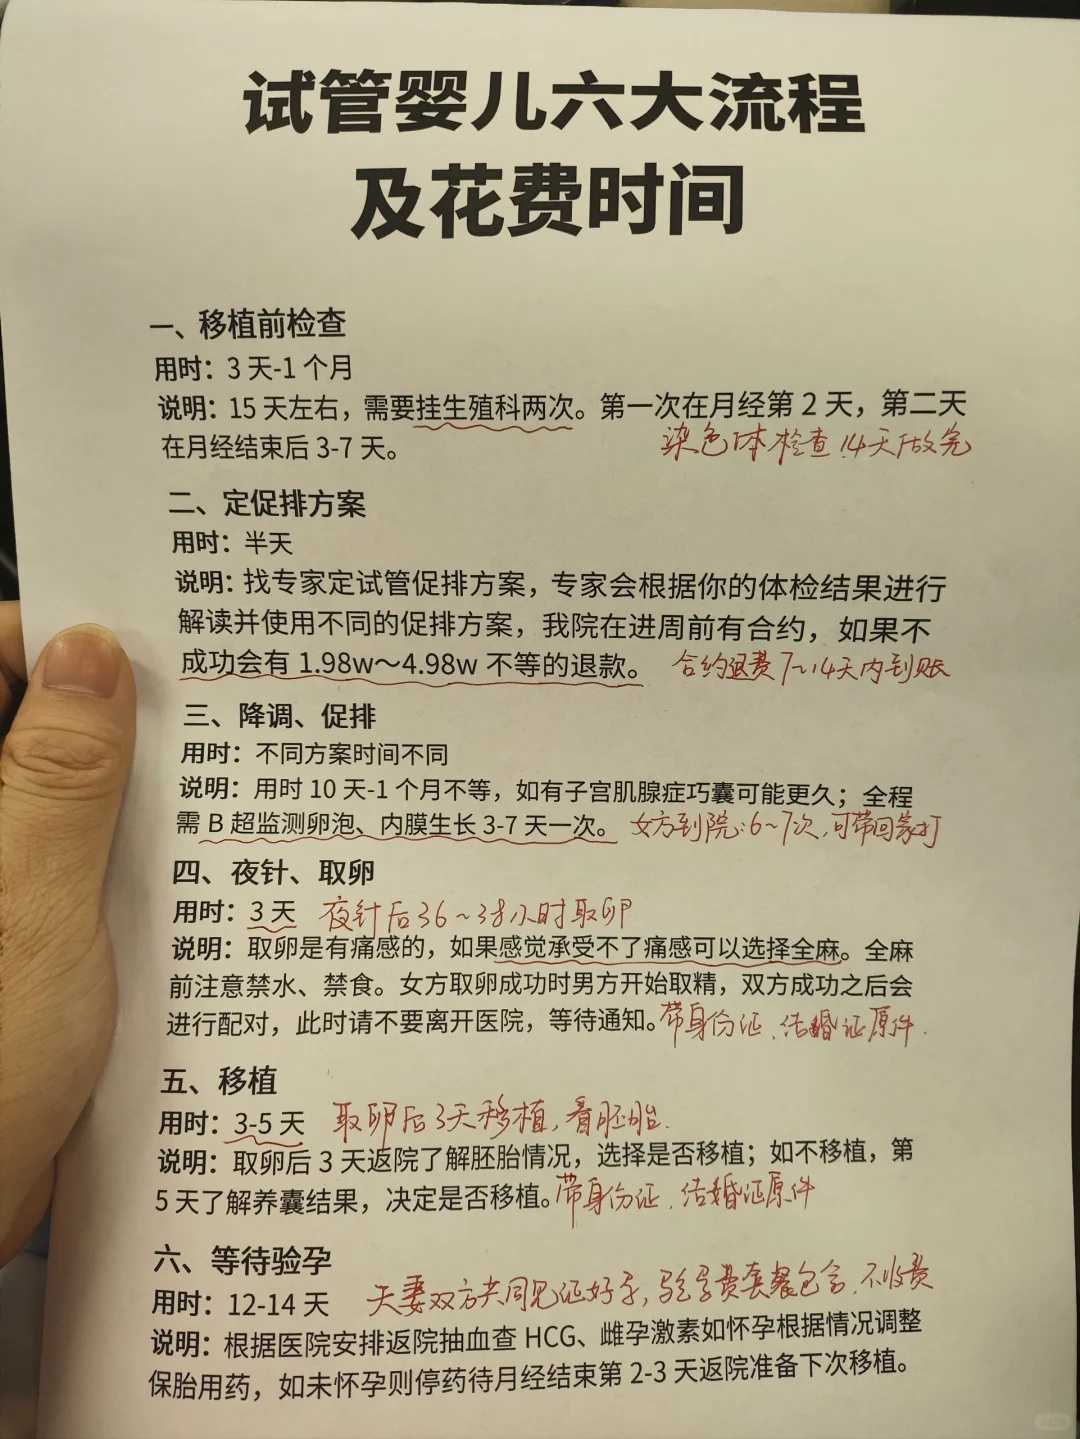 试管婴儿六大流程
及花费时间
一、移植前检查
用时：3 天-1 个月
说明：15 天左右，需要挂生殖科两次。第一次在月经第 2 天，第二天
在月经结束后 3-7 天。
染色体检查14天做完
二、定促排方案
用时：半天
说明：找专家定试管促排方案，专家会根据你的体检结果进行
解读并使用不同的促排方案，我院在进周前有合约，如果不
成功会有 1.98w～4.98w 不等的退款。
合约退费7~14天内到账
三、降调、促排
用时：不同方案时间不同
说明：用时 10 天-1 个月不等，如有子宫肌腺症巧囊可能更久；全程
需 B 超监测卵泡、内膜生长 3-7 天一次。
女方到院：6~7次，可带回家打
四、夜针、取卵
用时：3 天
夜针后36~38小时取卵
说明：取卵是有痛感的，如果感觉承受不了痛感可以选择全麻。全麻
前注意禁水、禁食。女方取卵成功时男方开始取精，双方成功之后会
进行配对，此时请不要离开医院，等待通知。
带身份证、结婚证原件.
五、移植
用时：3-5 天
取卵后3天移植，看胚胎.
说明：取卵后 3 天返院了解胚胎情况，选择是否移植；如不移植，第
5 天了解养囊结果，决定是否移植。
带身份证、结婚证原件
六、等待验孕
用时：12-14 天
夫妻双方共同见证好孕，验孕费套餐包含，不收费
说明：根据医院安排返院抽血查 HCG、雌孕激素如怀孕根据情况调整
保胎用药，如未怀孕则停药待月经结束第 2-3 天返院准备下次移植。